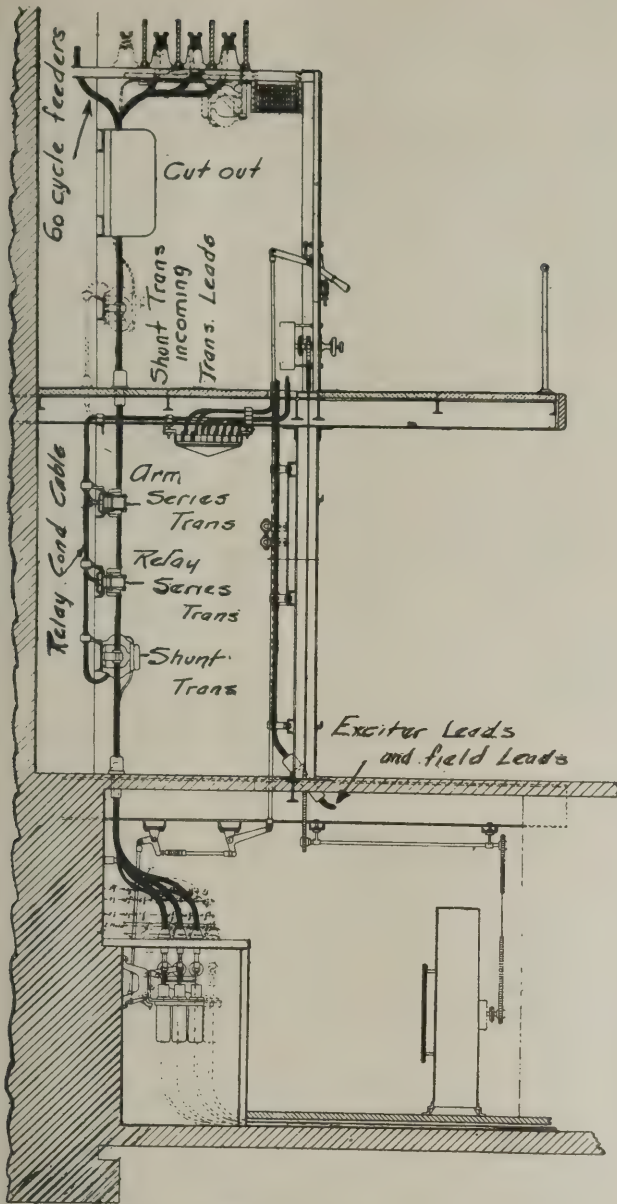 60 cycle feeders
Cut out
Shunt Trans
incoming
Trans. Leads
Relay Cond Cable
Arm
Series
Trans
Relay
Series
Trans
Shunt
Trans
Exciter Leads
and field Leads